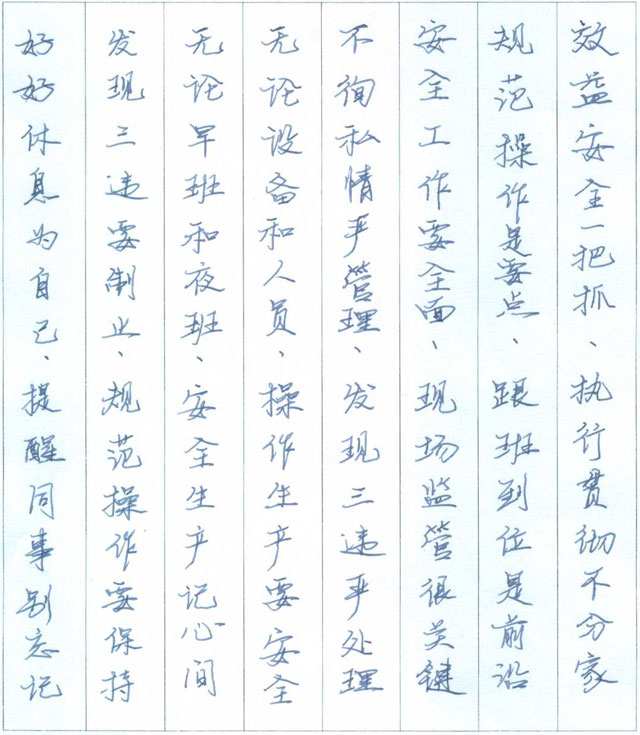 效益安全一把抓、执行贯彻不分家
规范操作是要点、跟班到位是前沿
安全工作要全面、现场监管很关键
不徇私情严管理、发现三违严处理
无论设备和人员、操作生产要安全
无论早班和夜班、安全生产记心间
发现三违要制止、规范操作要保持
好好休息为自己、提醒同事别忘记